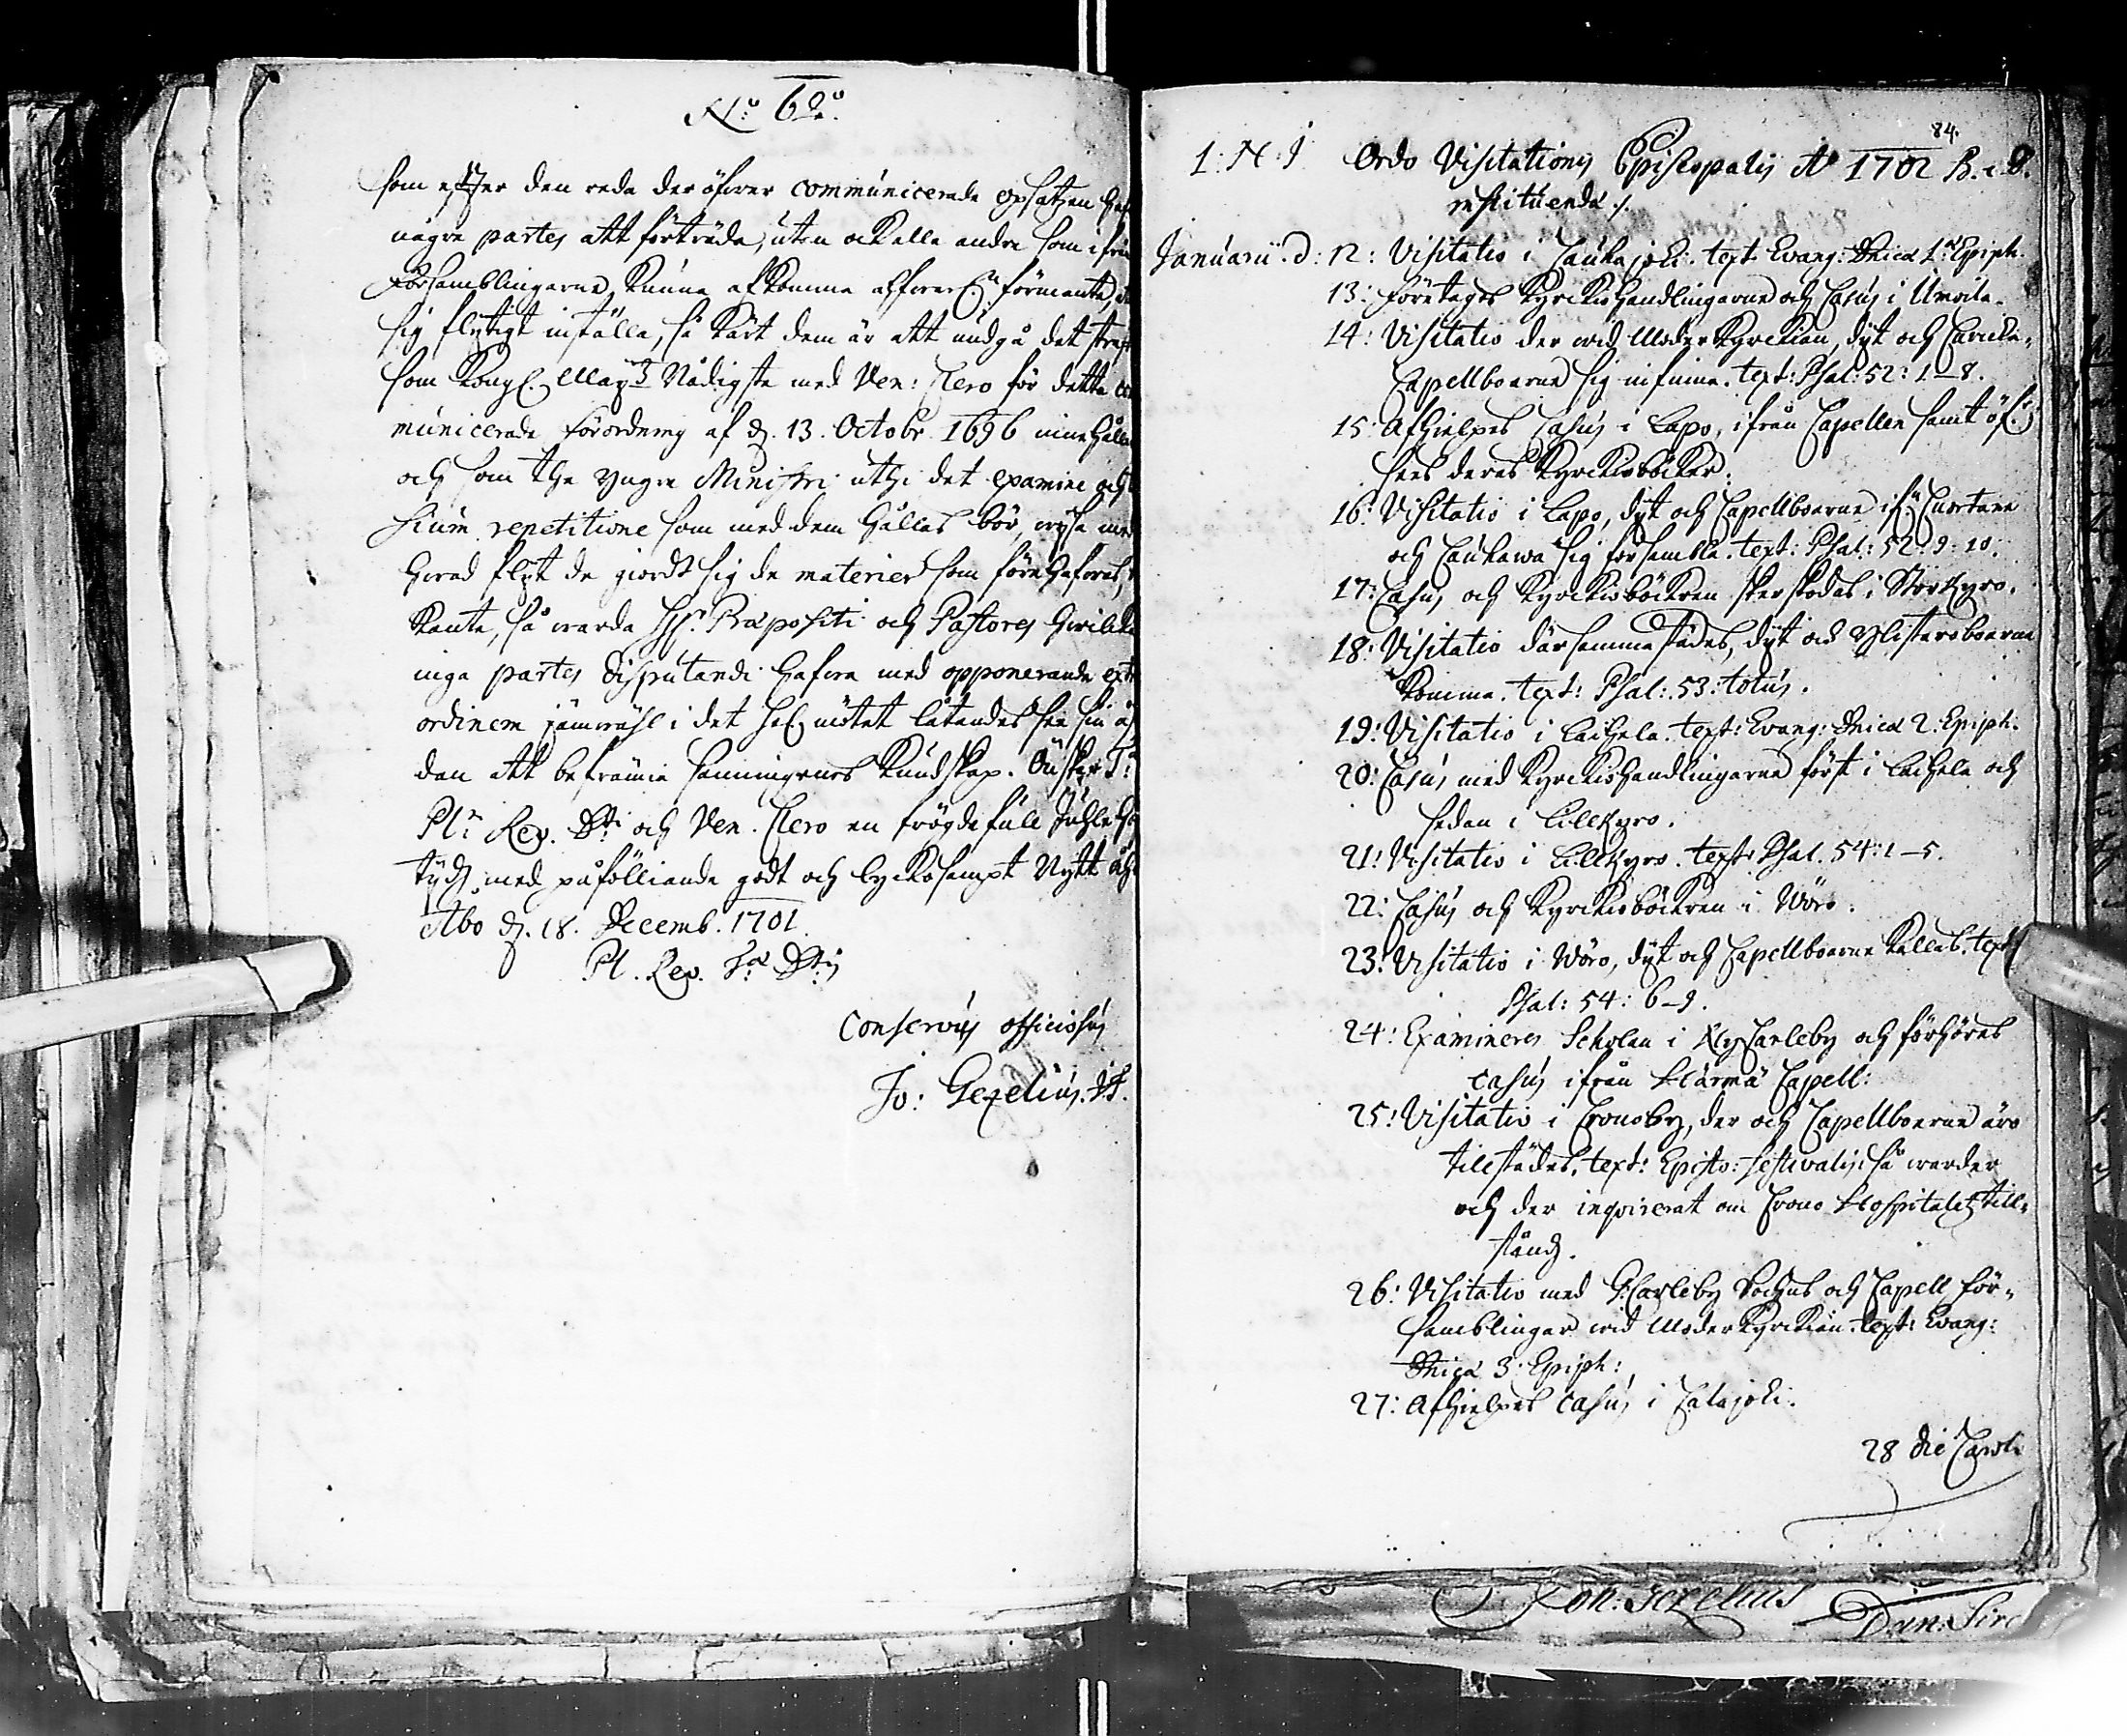 N:o 62.o
som effter den reda der öfwer communicerade opsatzen haf
någre partes att förträda, uten ock alle andre som ifrån
Församblingarne kunne afkomma
sig flytigt inställa, så kärt dem är att undgå det straff
som Kongl. Maij:tz Nådigste med Ven: Clero för detta com
municerade förordning af d. 13. Octobr. 1696 innehåller
och som the yngre Ministri uthi det examine och
som med dem hålles bör, wysa med
hwad flyt de giordt sig de materier som förehafwas,
kante, så warda HH:r Præpositi och Pastores hwilka
inga partes disputandi hafwa med opponerande extra
ordinem jämwähl i det H. mötet låtandes see sin åh
dan att befrämia sanningenes kundskap. Önskar T:
Pl: Rev. D:ti och Ven. Clero en frögdefull Juhle Hö
tijdh, med påfölliande godt och lyckosampt Nytt åhr
Åbo d. 18. Decemb. 1701.
Pl. Rev. D:tis
Conservus officiosus
Jo: Gezelius. Jf.
84.
I: N: J Ordo Visitationis Episcopalis A:o 1702 B. c. D.
instituendæ /.
Januarii. d: 12: Visitatio i Lauhajoki. text Evang: Dnica 1. Epiph.
13: företages Kyrkiohandlingarne och Casus i Umola.
14: Visitatio der wid Moderkyrckian, dijt och
Capellboerne sig infinna. text: Psal: 52: 1–8.
15: Afhielpes Casus i Lapo, ifrån Capellen samt öf:r
sees deras Kyrckioböcker.
16: Visitatio i Lapo, dijt och Capellboerne if:n Cuortane
och Lauhawa sig försambla. text: Psal: 52: 9: 10.
17: Casus och Kyrckioböckren skerskodas i Storkyro.
18: Visitatio där sammastädes, dijt och Ylistaroboerne
komma. text: Psal: 53: totus.
19: Visitatio i Laihela. text: Evang: Dnica 2. Epiph.
20: Casus med Kyrckiohandlingarne först i Laihela och
sedan i Lillkyro.
21: Visitatio i Lillkyro. text: Psal. 54: 1–5.
22: Casus och Kyrckioböckren i Wöro.
23: Visitatio i Wöro, dijt och Capellboerne kallas. text
Psal: 54: 6–9.
24: Examineras Scholan i NyCarleby och förhöres
casus ifrån Härmä Capell:
25: Visitatio i Cronoby, der och Capellboerne äro
tillstädes. text: Episto: festivalis. så warder
och der inqvirerat om Crono Hospitaletz till-
stånd.
26: Visitatio med G:Carleby Sochns och Capell för-
samblingar wid Moderkyrckian. text: Evang:
Dnica 3. Epiph:
27: Afhielpes casus i Calajoki.
28 die Caroli
Joh: Gezelius
Dan: